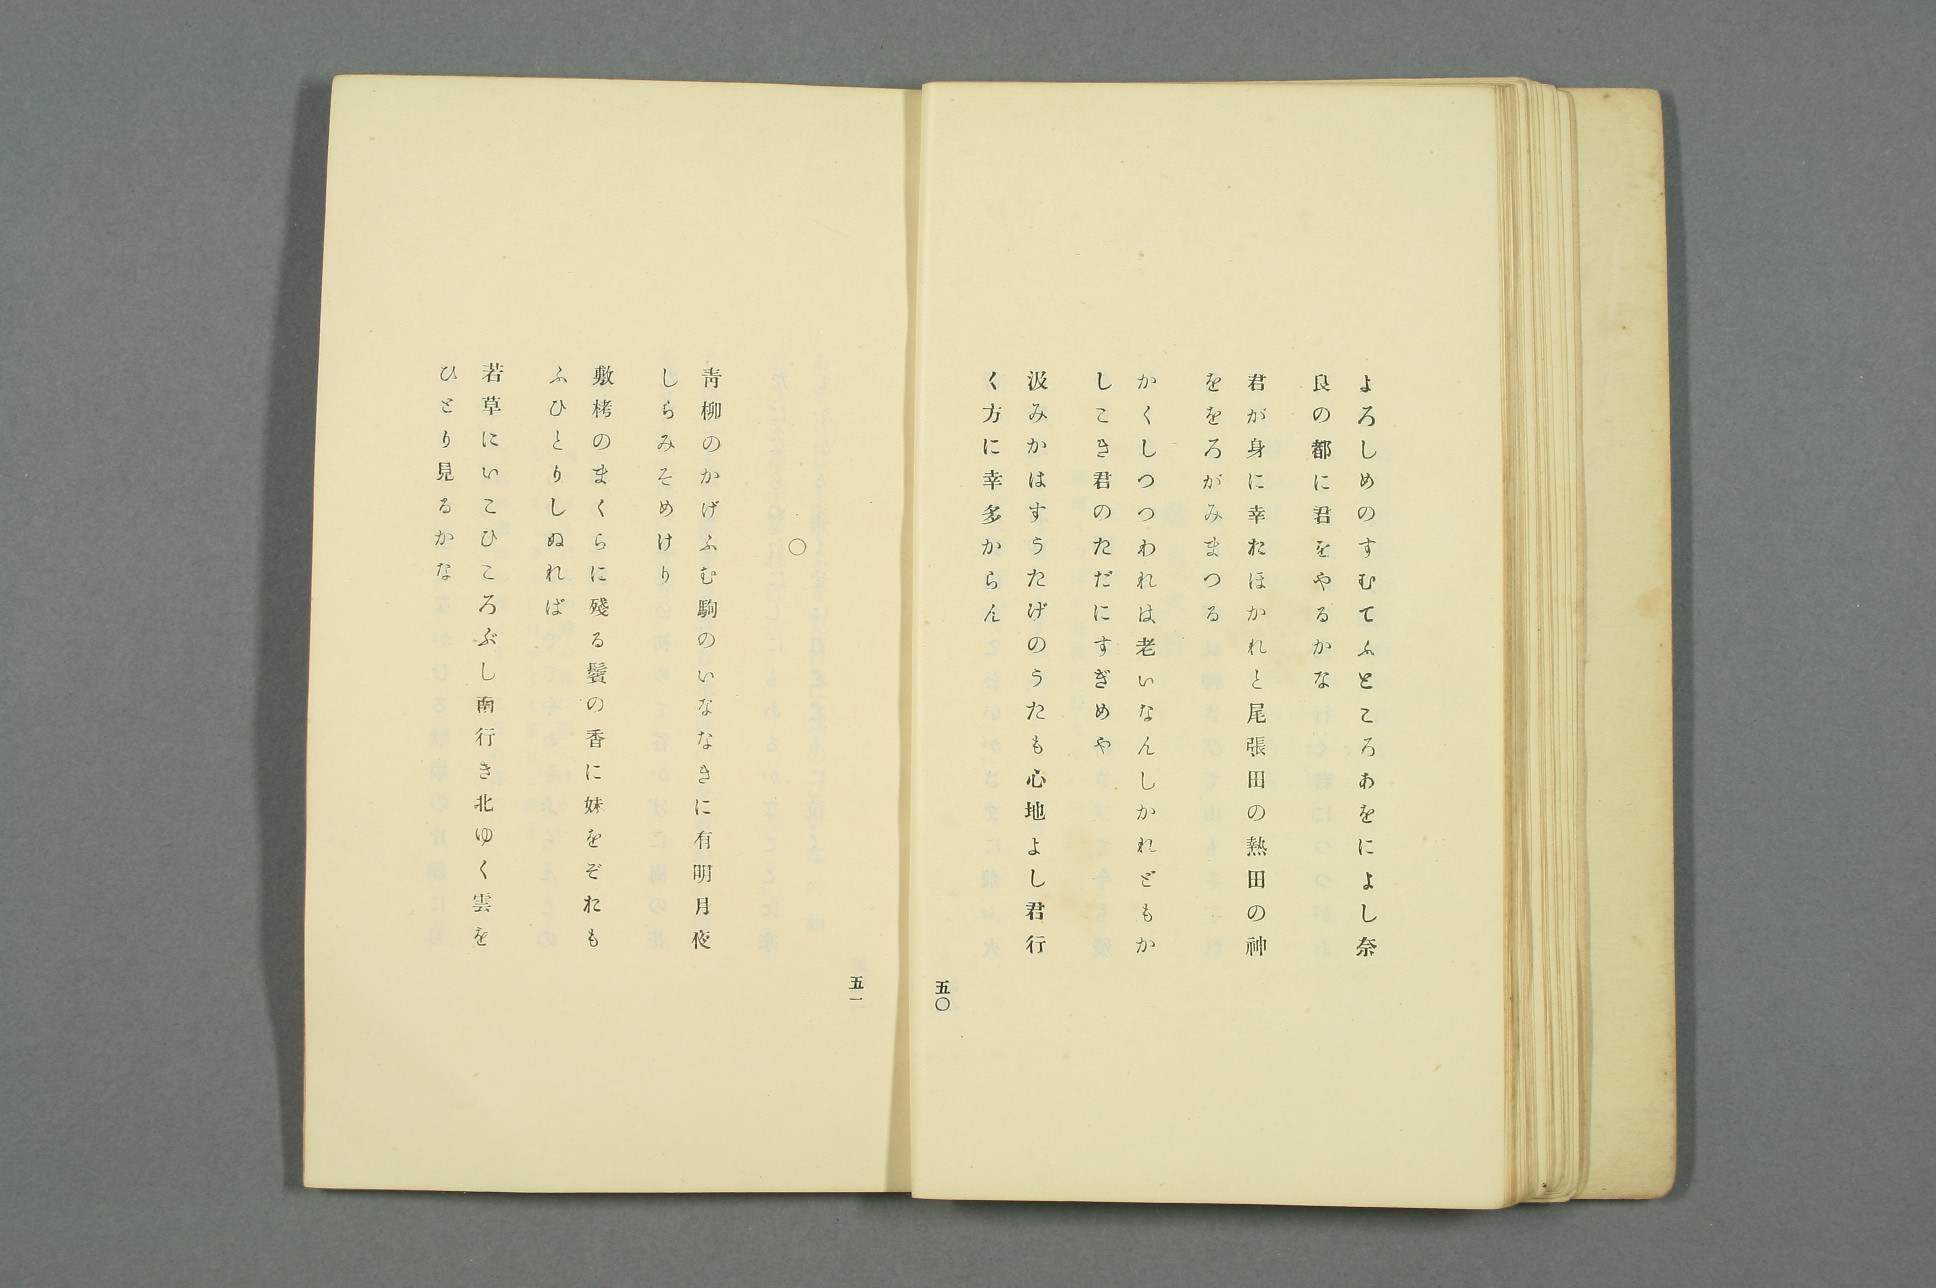 よろしめのすむてふところあをによし奈
良の都に君をやるかな
君が身に幸おほかれと尾張田の熱田の神
ををろがみまつる
かくしつつわれは老いなんしかれどもか
しこき君のただにすぎめや
汲みかはすうたげのうたも心地よし君行
く方に幸多からん
五〇
○
靑柳のかげふむ駒のいななきに有明月夜
しらみそめけり
敷栲のまくらに殘る鬢の香に妹をぞおも
ふひとりしぬれば
若草にいこひころぶし南行き北ゆく雲を
ひとり見るかな
五一